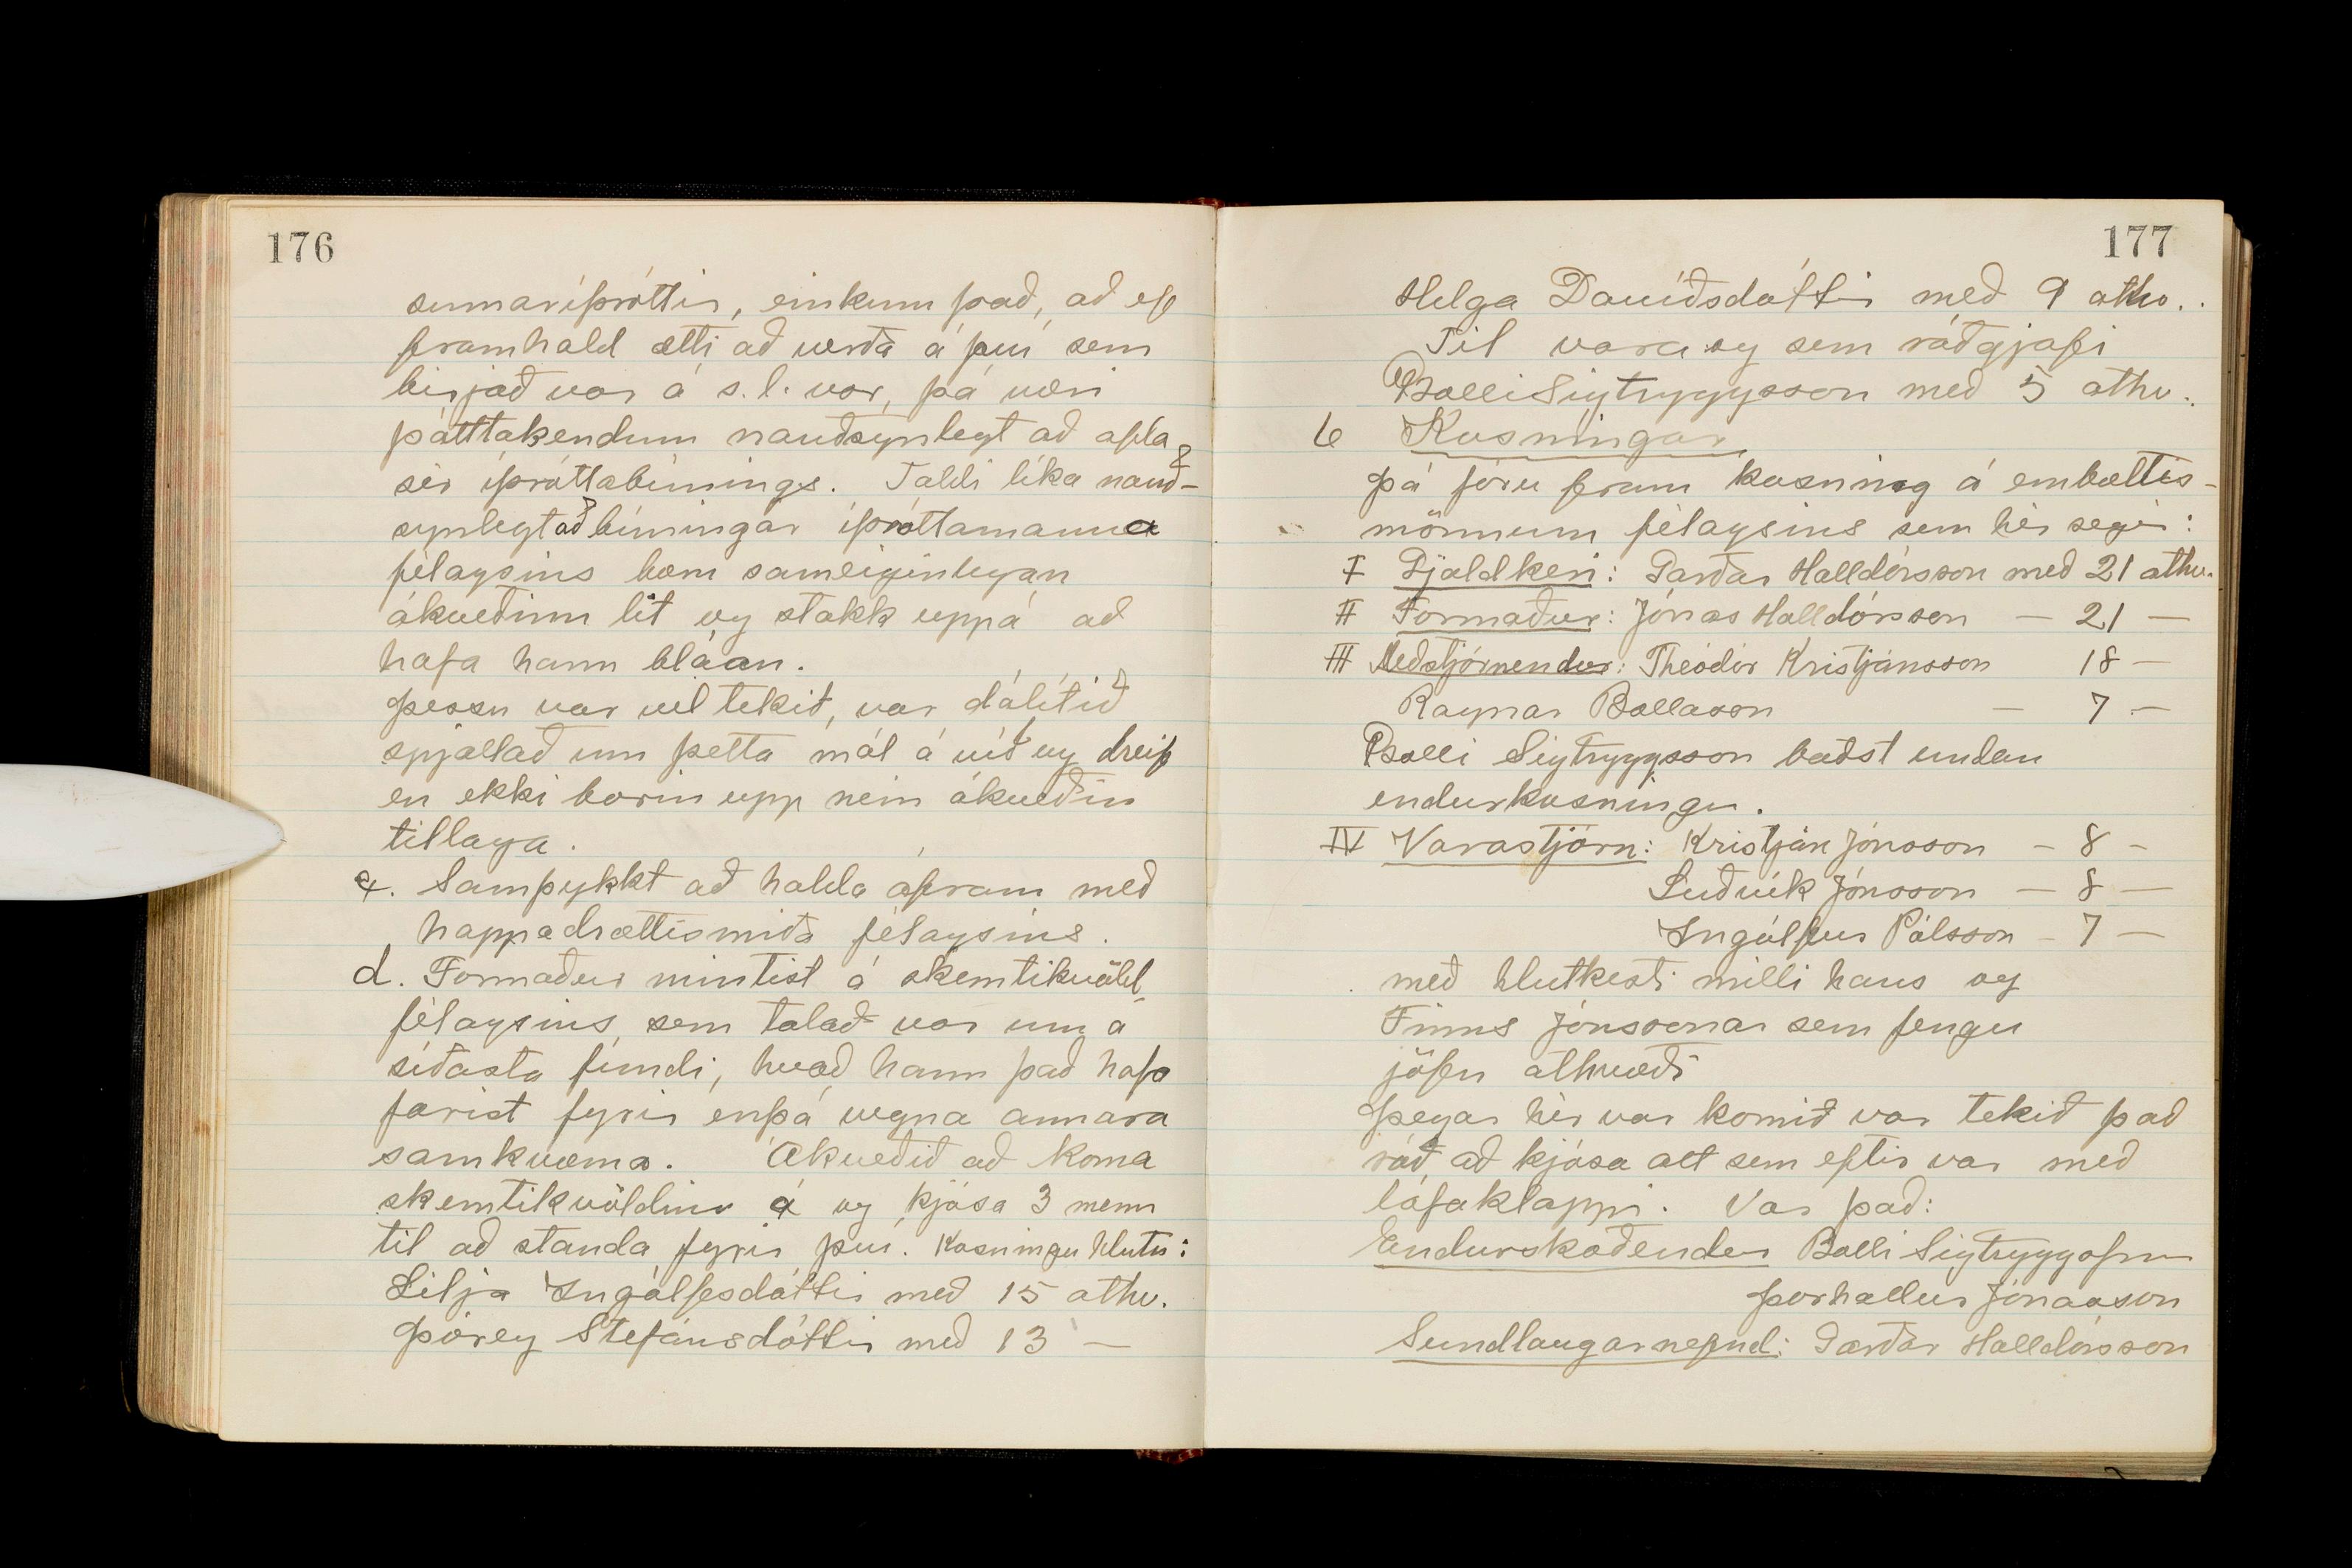 176
sumaríþróttir, einkum það, að ef
framhald ætti að verða á því sem
birjað var á s.l. vor, þá væri
þátttakendum nauðsynlegt að afla
sér íþróttabúnings. Taldi líka nauð-
synlegt að búningar íþróttamanna
félagsins bæru sameiginlegan
ákveðinn lit og stakk uppá að
hafa hann bláan.
Þessu var vel tekið, var dálítið
spjallað um þetta mál á víð og dreif
en ekki borin upp nein ákveðin
tillaga.
c. Samþykkt að halda áfram með
happadrættismiða félagsins.
d. Formaður mintist á skemtikvöld
félagsins, sem talað var um á
síðasta fundi, kvað hann það hafa
farist fyrir enþá vegna annara
samkvæma. Ákveðið að koma
skemtikvöldinu á og kjósa 3 menn
til að standa fyrir því. Kosningu hlutu:
Lilja Ingólfsdóttir með 15 atkv.
Þórey Stefánsdóttir með 13 —
177
Helga Davíðsdóttir með 9 atkv..
Til vara og sem ráðgjafi
Balli Sigtryggsson með 5 atkv.
6 Kosningar
Þá fóru fram kosning á embættis-
mönnum félagsins sem hér segir:
I Gjaldkeri: Garðar Halldórsson með 21 atkv.
II Formaður: Jónas Halldórsson — 21 —
III Meðstjórnendur: Theódór Kristjánsson 18 —
Ragnar Bollason — 7 —
Balli Sigtryggsson baðst undan
endurkosningu.
IV Varastjórn: Kristján Jónsson — 8 —
Lúðvík Jónsson — 8 —
Ingólfur Pálsson — 7 —
með hlutkesti milli hans og
Finns Jónssonar sem fengu
jöfn atkvæði
Þegar hér var komið var tekið það
ráð að kjósa alt sem eftir var með
lófaklappi. Var það:
Endurskoðendur Balli Sigtryggsson
Þórhallur Jónasson
Sundlaugarnefnd: Garðar Halldórsson